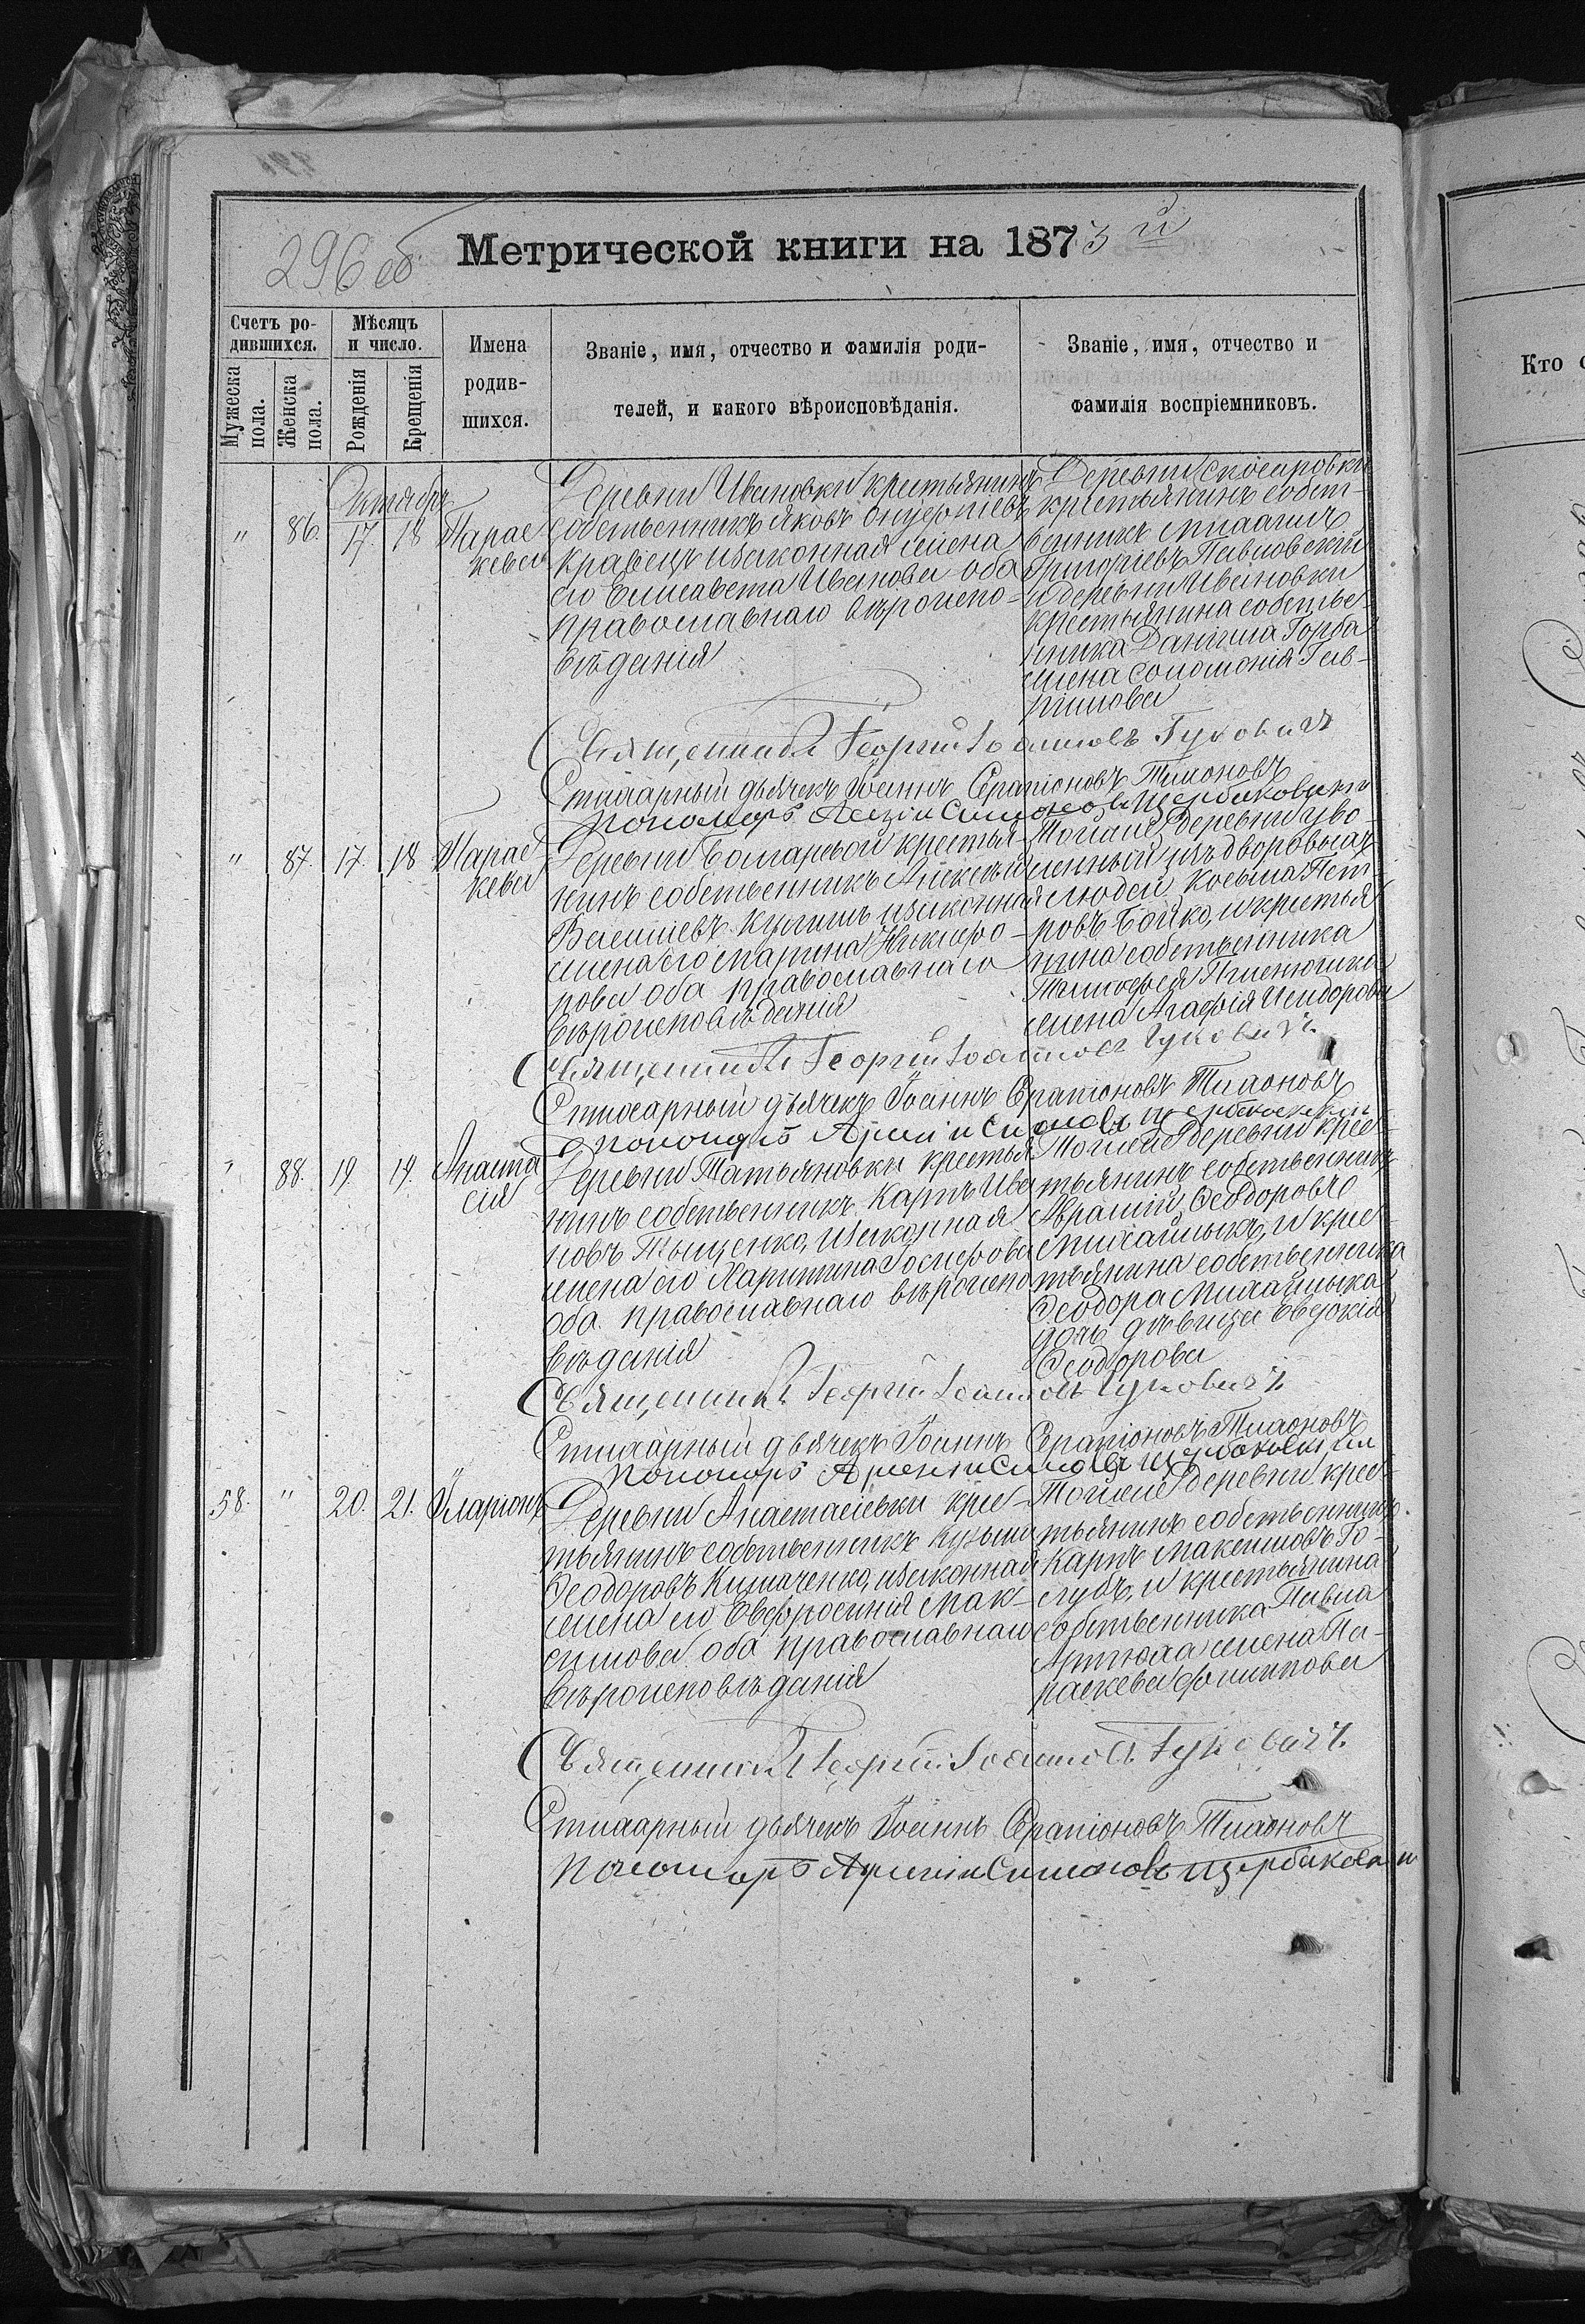 296 об
Метрической книги на 1873 й
Счетъ ро-
дившихся.
Мужеска
пола.
Женска
пола.
Мѣсяцъ
и число.
Рожденія
Крещенія
Имена
родив-
шихся.
Званіе, имя, отчество и фамилія роди-
телей, и какого вѣроисповѣданія.
Званіе, имя, отчество и
фамилія воспріемниковъ.
Кто
Октябрь
" 86. 17. 18 Парас
кева
Деревни Ивановки крестьянинъ
собственникъ Яковъ
Кравецъ и законная жена
его Елисавета Иванова оба
православнаго вѣроиспо-
вѣданія
Деревни
крестьянинъ собст-
венникъ Михаилъ
Григоріевъ Павловскій
и деревни Ивановки
крестьянина собстве-
нника Даніила Горба
жена Соломонія Гав-
риилова
Священникъ Георгій Іоанновъ Гуковичъ
Стихарный дьячекъ Іоаннъ Серапіоновъ Тихоновъ
Пономарь Симоновъ Щербаковскій
" 87. 17. 18 Парас
кева
Деревни крестья-
нинъ собственникъ Алексѣй
Василіевъ и законная
жена его Марина Никифо-
рова оба православнаго
вѣроисповѣданія
Тойже деревни уво-
ленный изъ дворовыхъ
людей Косьма Пет-
ровъ Бойко, и крестья
нина собственника
Тимофея
жена Агафія Исидорова
Священникъ Георгій Іоанновъ Гуковичъ
Стихарный дьячекъ Іоаннъ Серапіоновъ Тихоновъ
Пономарь Симоновъ Щербаковскій
" 88. 19. 19. Анаста
сія
Деревни Татьяновки крестья
нинъ собственникъ Карпъ Ива
новъ Тыщенко, и законная
жена его Харитина
оба православнаго вѣроиспо
вѣданія
Тойже деревни крес-
тьянинъ собственникъ
Аврамій Ѳеодоровъ
Михайлыкъ, и крес
тьянина собственника
Ѳеодора Михайлыка
дочь дѣвица Евдокія
Ѳеодорова
Священникъ Георгій Іоанновъ Гуковичъ
Стихарный дьячекъ Іоаннъ Серапіоновъ Тихоновъ
Пономарь Симоновъ Щербаковскій
58. " 20. 21. Иларіонъ
Деревни Анастасіевки крес-
тьянинъ собственникъ Кузьма
Ѳеодоровъ и законная
жена его Евфросинія Мак-
симова оба православнаго
вѣроисповѣданія
Тойже деревни крес-
тьянинъ собственникъ
Карпъ Максимовъ Го-
лубъ, и крестьянина
собственника Павла
жена Па-
раскева Филиппова
Священникъ Георгій Іоанновъ Гуковичъ
Стихарный дьячекъ Іоаннъ Серапіоновъ Тихоновъ
Пономарь Симоновъ Щербаковскій